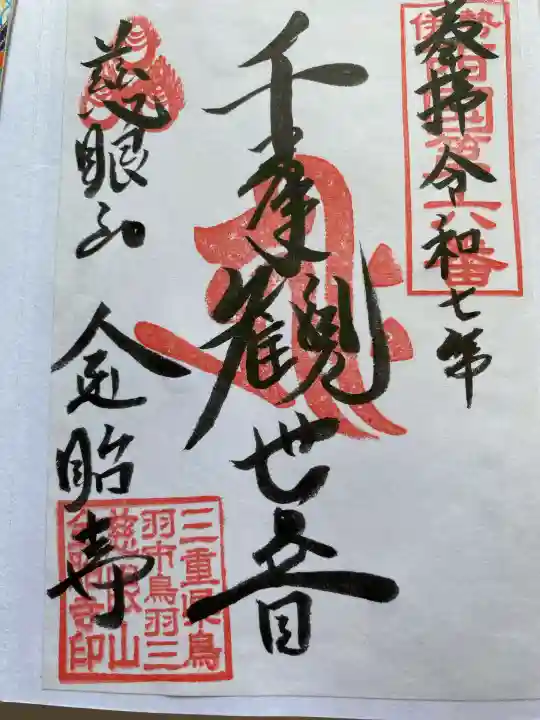 奉拝 令和七年
伊勢西国第六番
千手觀世音
慈眼山 金胎寺
三重県鳥
羽市鳥羽三
慈眼山
金胎寺印